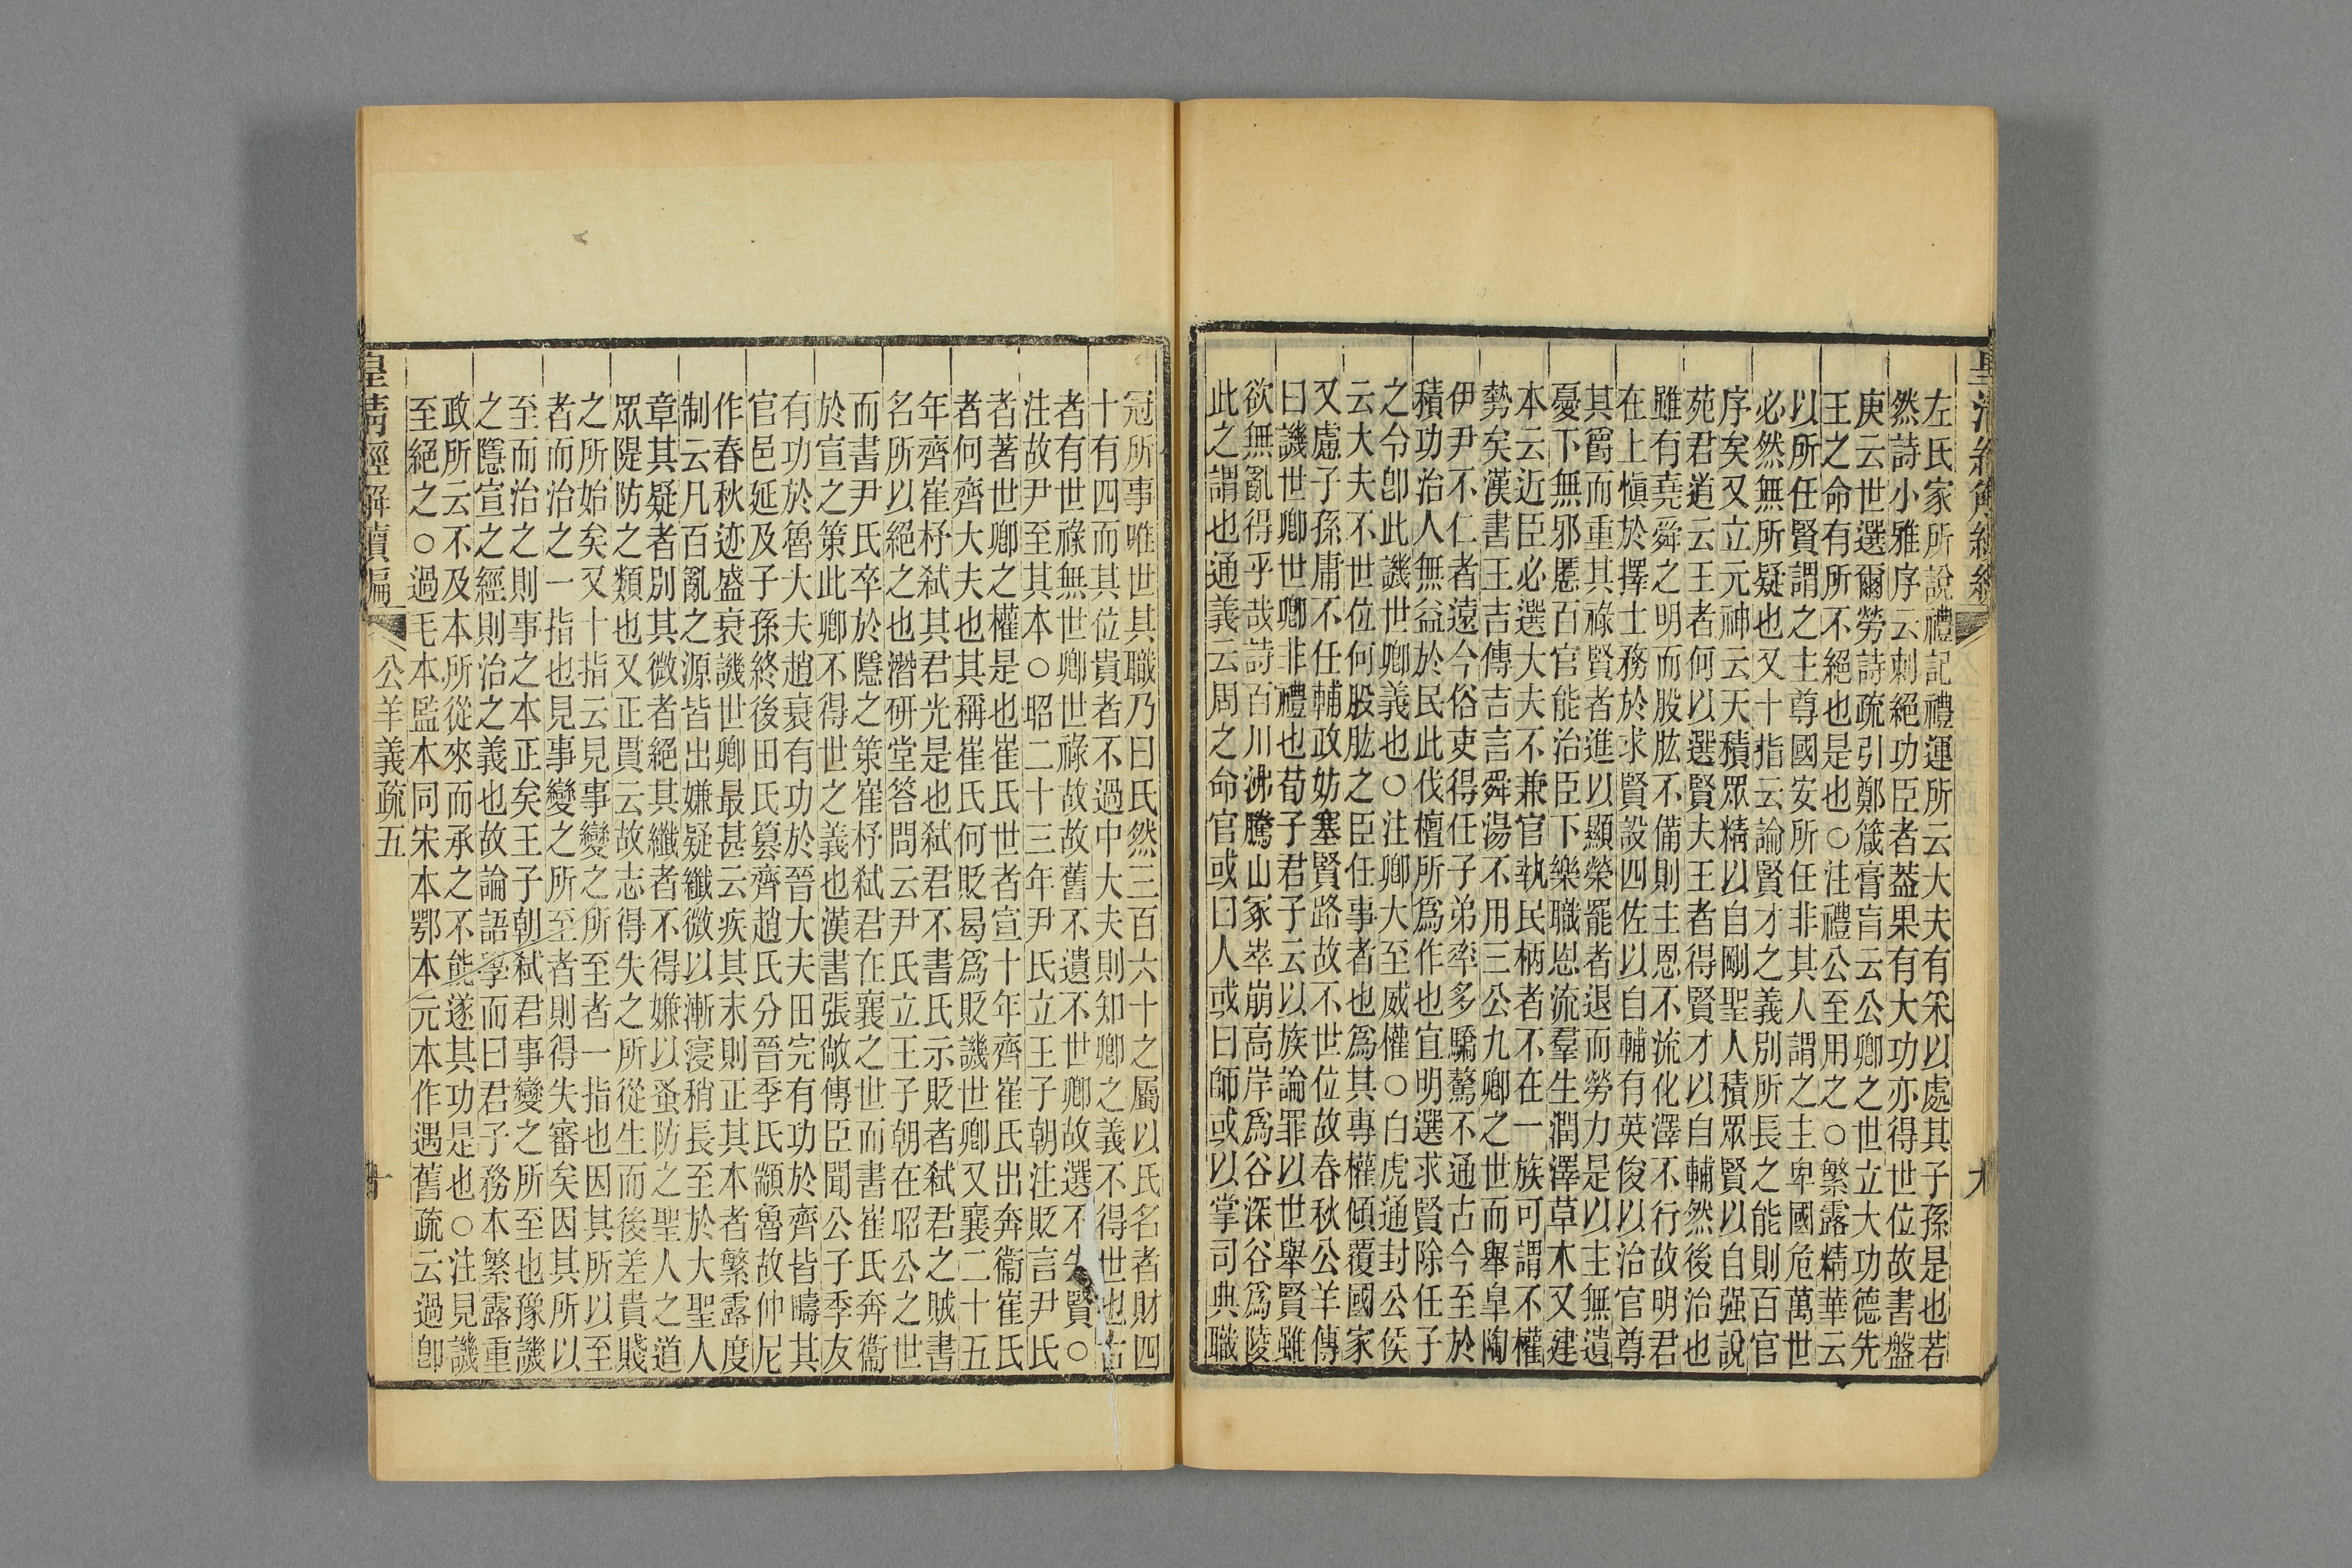 左氏家所說禮記禮運所云大夫有采以處其子孫是也若
然詩小雅序云刺絕功臣者葢果有大功亦得世位故書盤
庚云世選爾勞詩疏引鄭箴膏肓云公卿之世立大功德先
王之命有所不絕也是也○注禮公至用之○繁露精華云
以所任賢謂之主尊國安所任非其人謂之主卑國危萬世
必然無所疑也又十指云論賢才之義別所長之能則百官
序矣又立元神云天積眾精以自剛聖人積眾賢以自强說
苑君道云王者何以選賢夫王者得賢才以自輔然後治也
雖有堯舜之明而股肱不備則主恩不流化澤不行故明君
在上愼於擇士務於求賢設四佐以自輔有英俊以治官尊
其爵而重其祿賢者進以顯榮罷者退而勞力是以主無遺
憂下無邪慝百官能治臣下樂職恩流羣生潤澤草木又建
本云近臣必選大夫不兼官執民柄者不在一族可謂不權
勢矣漢書王吉傳吉言舜湯不用三公九卿之世而舉皐陶
伊尹不仁者遠今俗吏得任子弟率多驕驁不通古今至於
積功治人無益於民此伐檀所爲作也宜明選求賢除任子
之令卽此譏世卿義也○注卿大至威權○白虎通封公侯
云大夫不世位何股肱之臣任事者也爲其專權傾覆國家
又慮子孫庸不任輔政妨塞賢路故不世位故春秋公羊傳
曰譏世卿世卿非禮也荀子君子云以族論罪以世舉賢雖
欲無亂得乎哉詩百川沸騰山冢崒崩高岸爲谷深谷爲陵
此之謂也通義云周之命官或曰人或曰師或以掌司典職
冠所事唯世其職乃曰氏然三百六十之屬以氏名者財四
十有四而其位貴者不過中大夫則知卿之義不得世也古
者有世祿無世卿世祿故故舊不遺不世卿故選不失賢○
注故尹至其本○昭二十三年尹氏立王子朝注貶言尹氏
者著世卿之權是也崔氏世者宣十年齊崔氏出奔衞崔氏
者何齊大夫也其稱崔氏何貶曷爲貶譏世卿又襄二十五
年齊崔杼弑其君光是也弑君不書氏示貶者弑君之賊書
名所以絕之也潛研堂答問云尹氏立王子朝在昭公之世
而書尹氏卒於隱之策崔杼弑君在襄之世而書崔氏奔衞
於宣之策此卿不得世之義也漢書張敞傳臣聞公子季友
有功於魯大夫趙衰有功於晉大夫田完有功於齊皆疇其
官邑延及子孫終後田氏篡齊趙氏分晉季氏顓魯故仲尼
作春秋迹盛衰譏世卿最甚云疾其末則正其本者繁露度
制云凡百亂之源皆出嫌疑纖微以漸寖稍長至於大聖人
章其疑者別其微者絕其纖者不得嫌以蚤防之聖人之道
眾隄防之類也又正貫云故志得失之所從生而後差貴賤
之所始矣又十指云見事變之所至者一指也因其所以至
者而治之一指也見事變之所至者則得失審矣因其所以
至而治之則事之本正矣王子朝弑君事變之所至也豫譏
之隱宣之經則治之義也故論語學而曰君子務本繁露重
政所云不及本所從來而承之不能遂其功是也○注見譏
至絕之○過毛本監本同宋本鄂本元本作遇舊疏云過卽
皇清經解續編
公羊義疏五
十